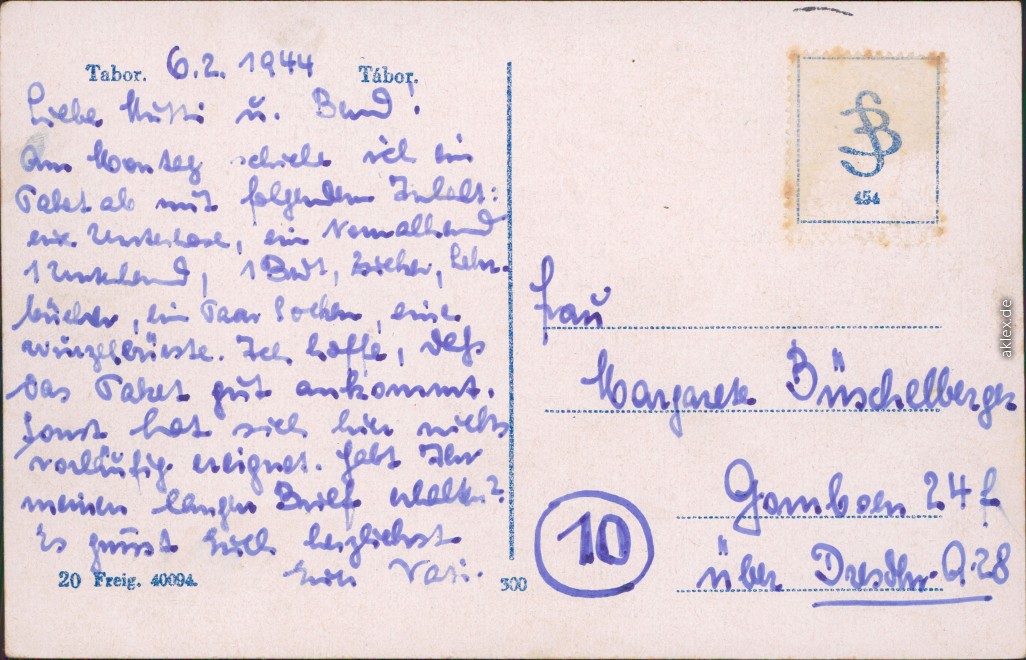 Tabor. 6.2. 1944 Tábor.
Liebe Mutti u. Bernd!
Am Montag schicke ich ein
Paket ab mit folgendem Inhalt:
eine Unterhose, ein Normalhemd
1 Unterhemd, 1 Brot, Bücher, Lehr-
bücher, ein Paar Socken, eine
wurzelbürste. Ich hoffe, daß
das Paket gut ankommt.
Sonst hat sich hier nichts
vorläufig ereignet. Habt Ihr
meinen langen Brief erhalten?
Es grüsst Euch herzlichst
Euer Vati.
20 Freig. 40094.
300
JSB
454
Frau
Margarete Büschelberger
Gomben 24 f
über Dresden A.28
10
aklex.de